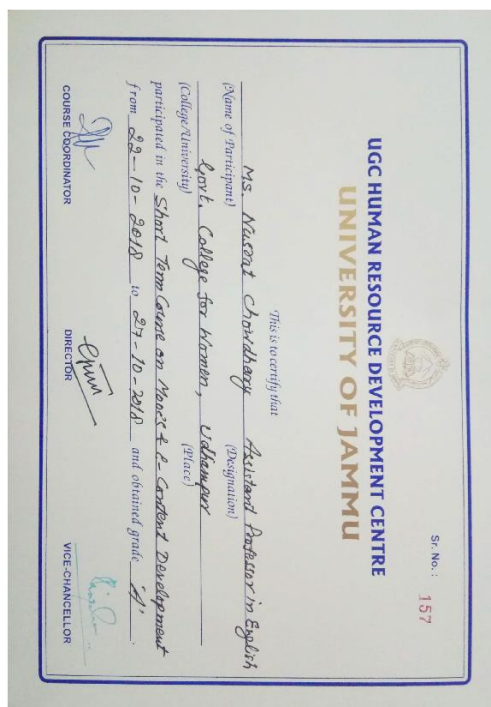 Sr. No. : 157
UGC HUMAN RESOURCE DEVELOPMENT CENTRE
UNIVERSITY OF JAMMU
This is to certify that
Ms. Nusrat Chowdhary Assistant Professor in English
(Name of Participant) (Designation)
Govt. College for Women, Udhampur
(College/University) (Place)
participated in the Short Term Course on Mooc's & e-Content Development
from 22-10-2018 to 27-10-2018 and obtained grade 'A'.
COURSE COORDINATOR DIRECTOR VICE-CHANCELLOR